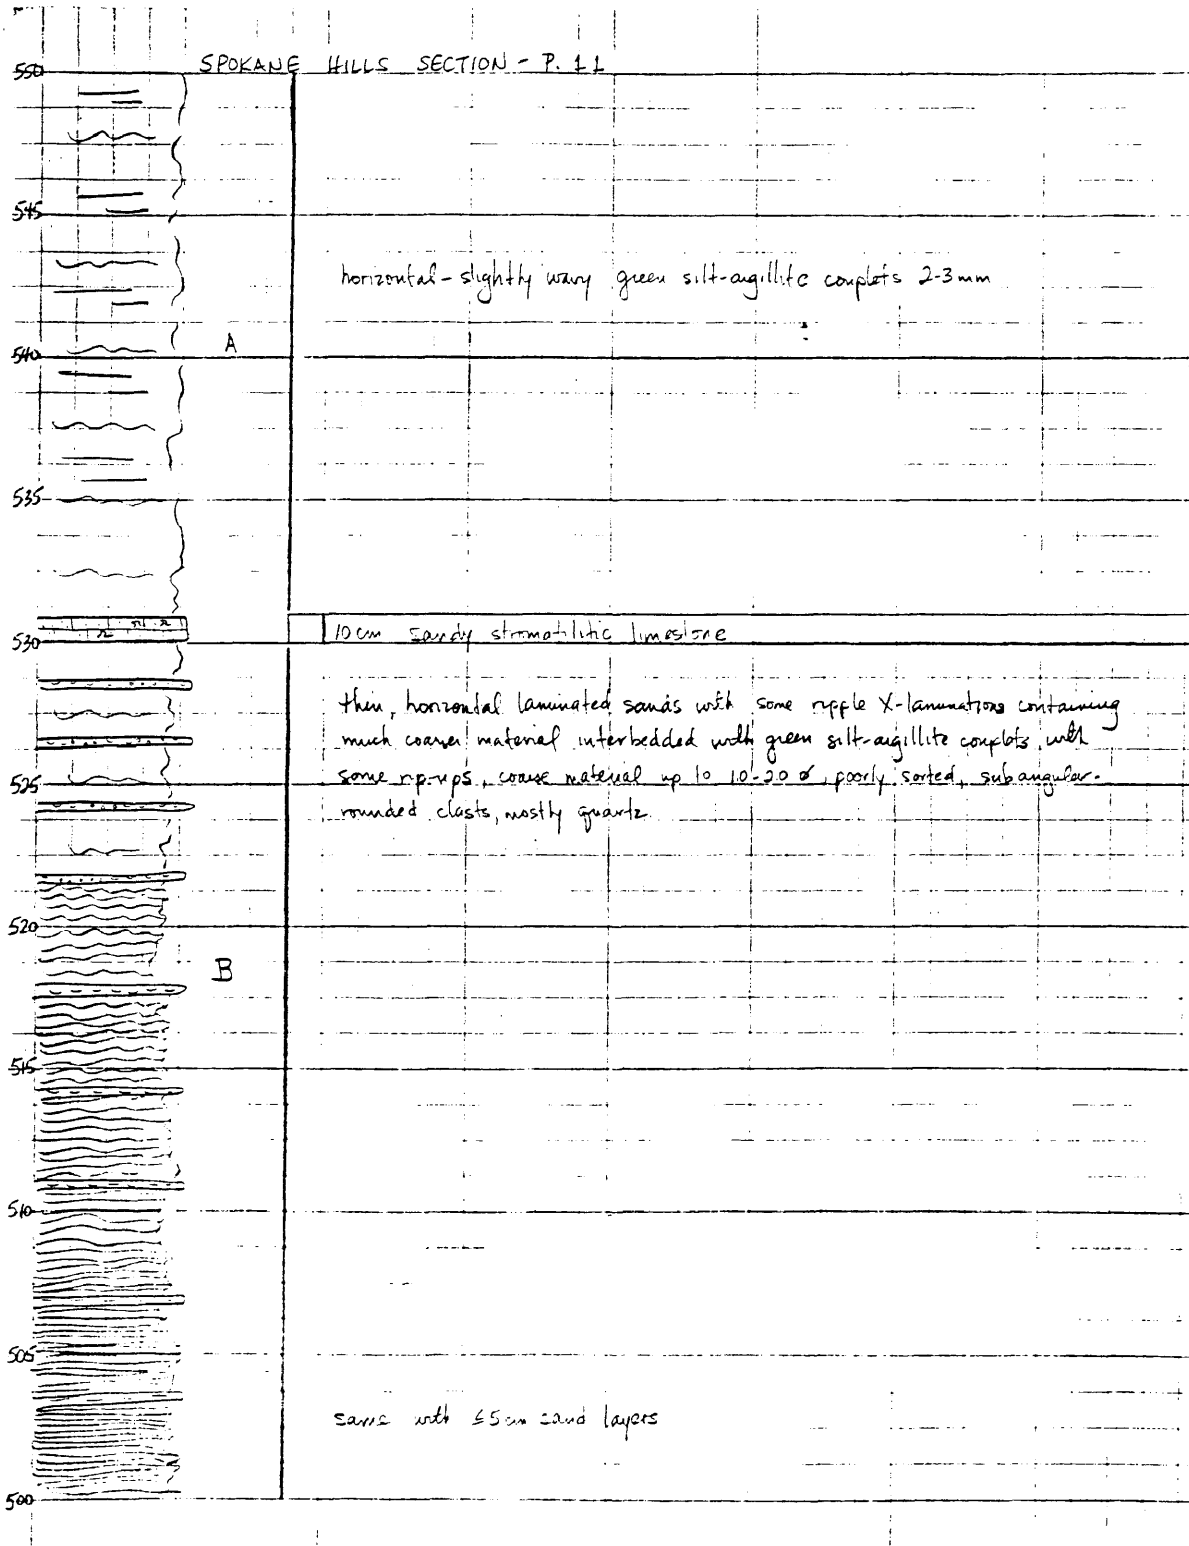 SPOKANE HILLS SECTION - P. 11
550
545
horizontal - slightly wavy green silt-argillite couplets 2-3 mm
A
540
535
10 cm sandy stromatilitic limestone
530
thin, horizontal laminated sands with some ripple X-laminations containing
much coarser material interbedded with green silt-argillite couplets with
some rip-ups, coarse material up to 1.0-2.0 ø, poorly sorted, subangular-
525
rounded clasts, mostly quartz
520
B
515
510
505
same with ≤5 cm sand layers
500